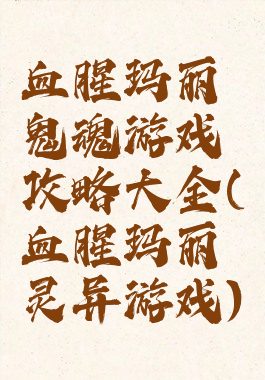 血腥玛丽
鬼魂游戏
攻略大全(
血腥玛丽
灵异游戏)